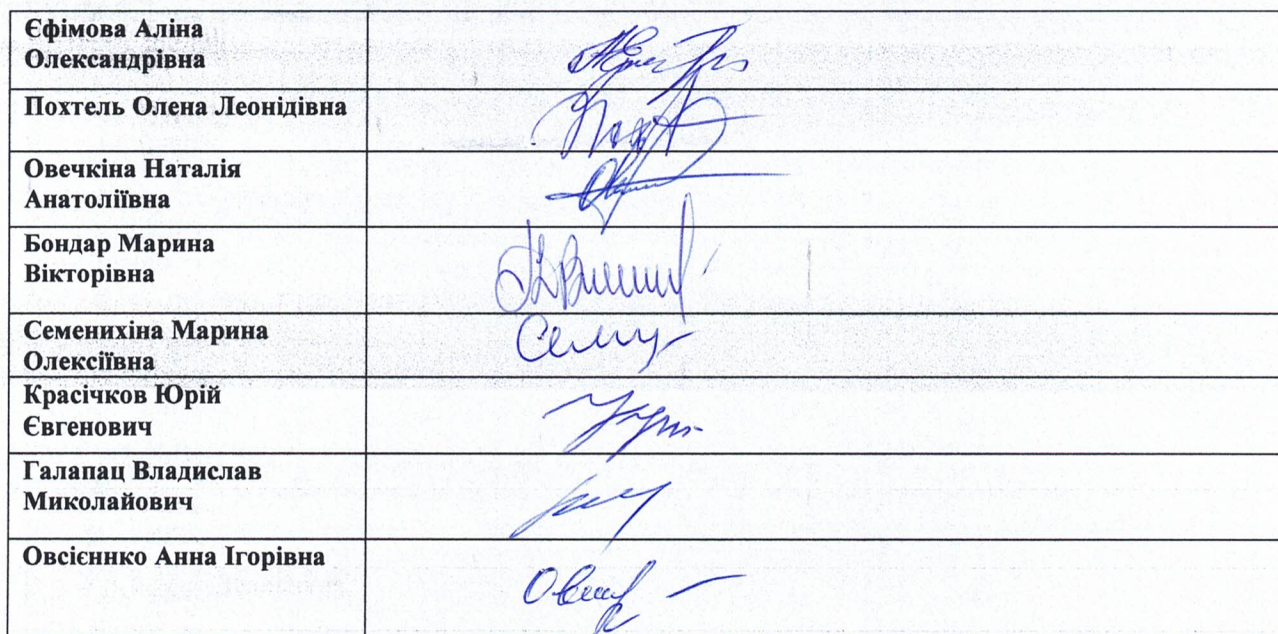 Єфімова Аліна
Олександрівна
Похтель Олена Леонідівна
Овечкіна Наталія
Анатоліївна
Бондар Марина
Вікторівна
Семенихіна Марина
Олексіївна
Красічков Юрій
Євгенович
Галапац Владислав
Миколайович
Овсієннко Анна Ігорівна